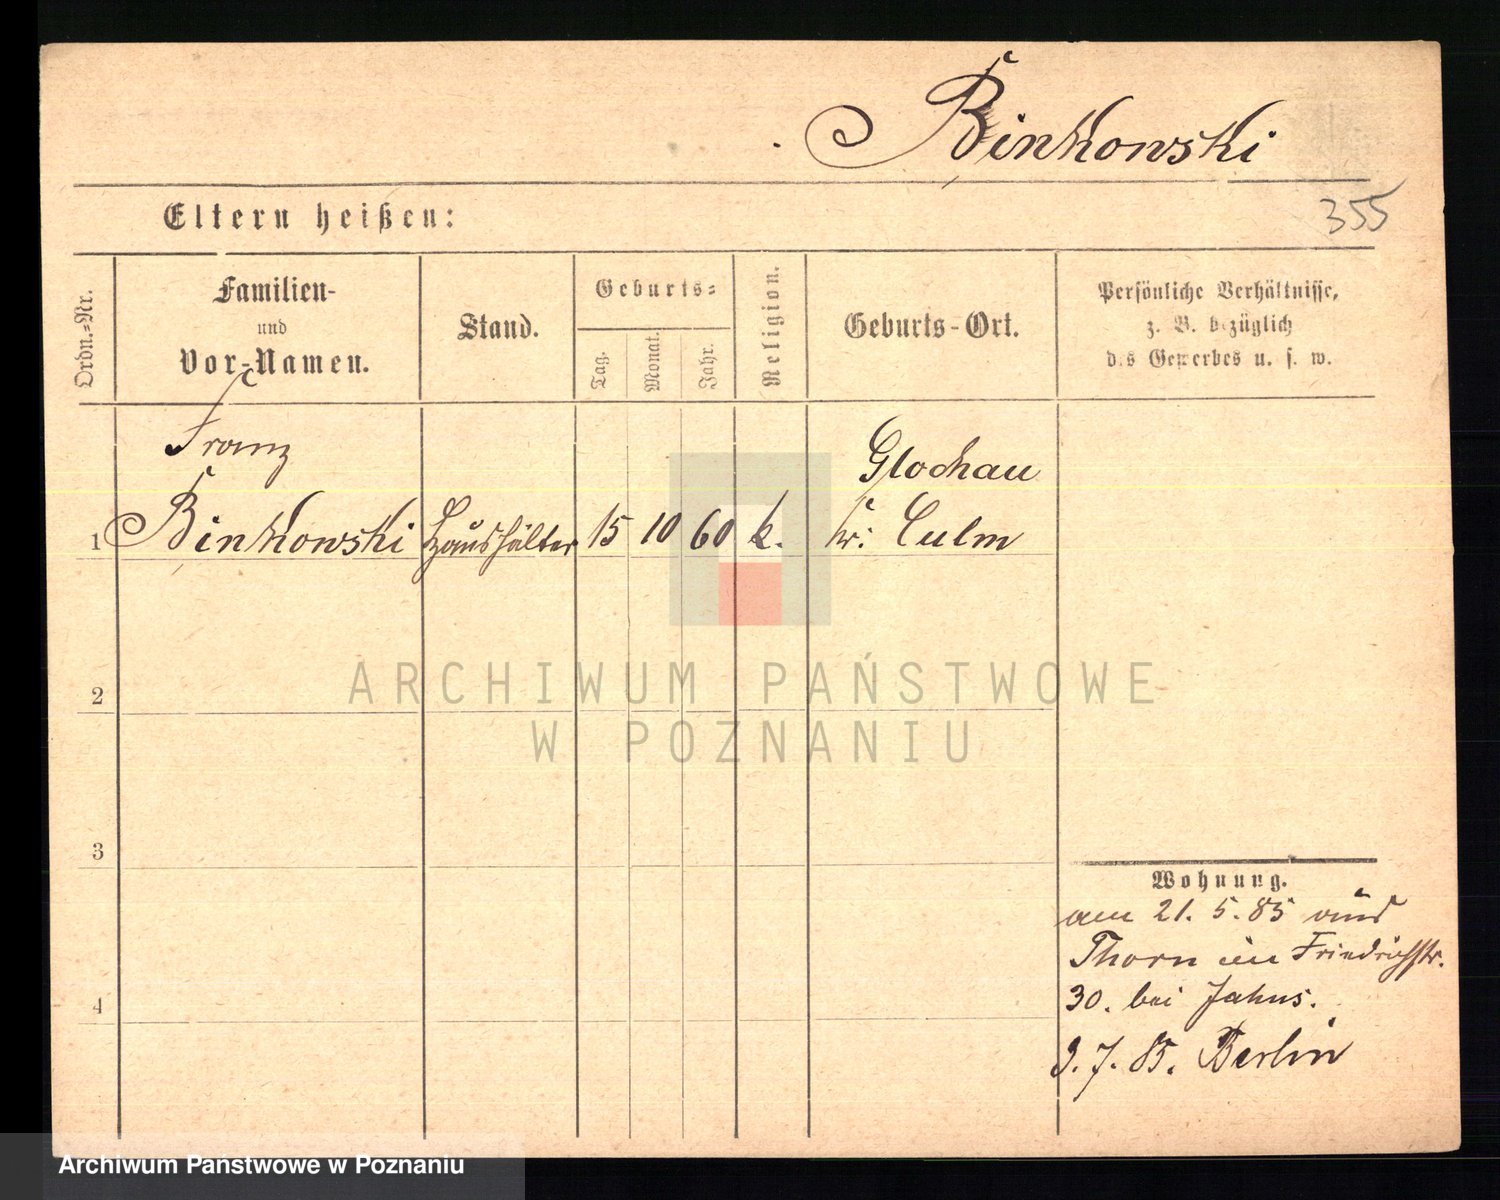 Binkowski
355
Eltern heißen:
Ordn.=Nr.
Familien-
und
Vor-Namen.
Stand.
Geburts=
Tag.
Monat.
Jahr.
Religion.
Geburts-Ort.
Persönliche Verhältnisse,
z. B. bezüglich
des Gewerbes u. s. w.
Franz
Glochau
1 Binkowski Haushälter 15 10 60 k. Kr. Culm
2
ARCHIWUM PAŃSTWOWE
W POZNANIU
3
Wohnung.
am 21. 5. 85 aus
Thorn in Friedrichstr.
30. bei Jahns.
4
9. 7. 85. Berlin
Archiwum Państwowe w Poznaniu